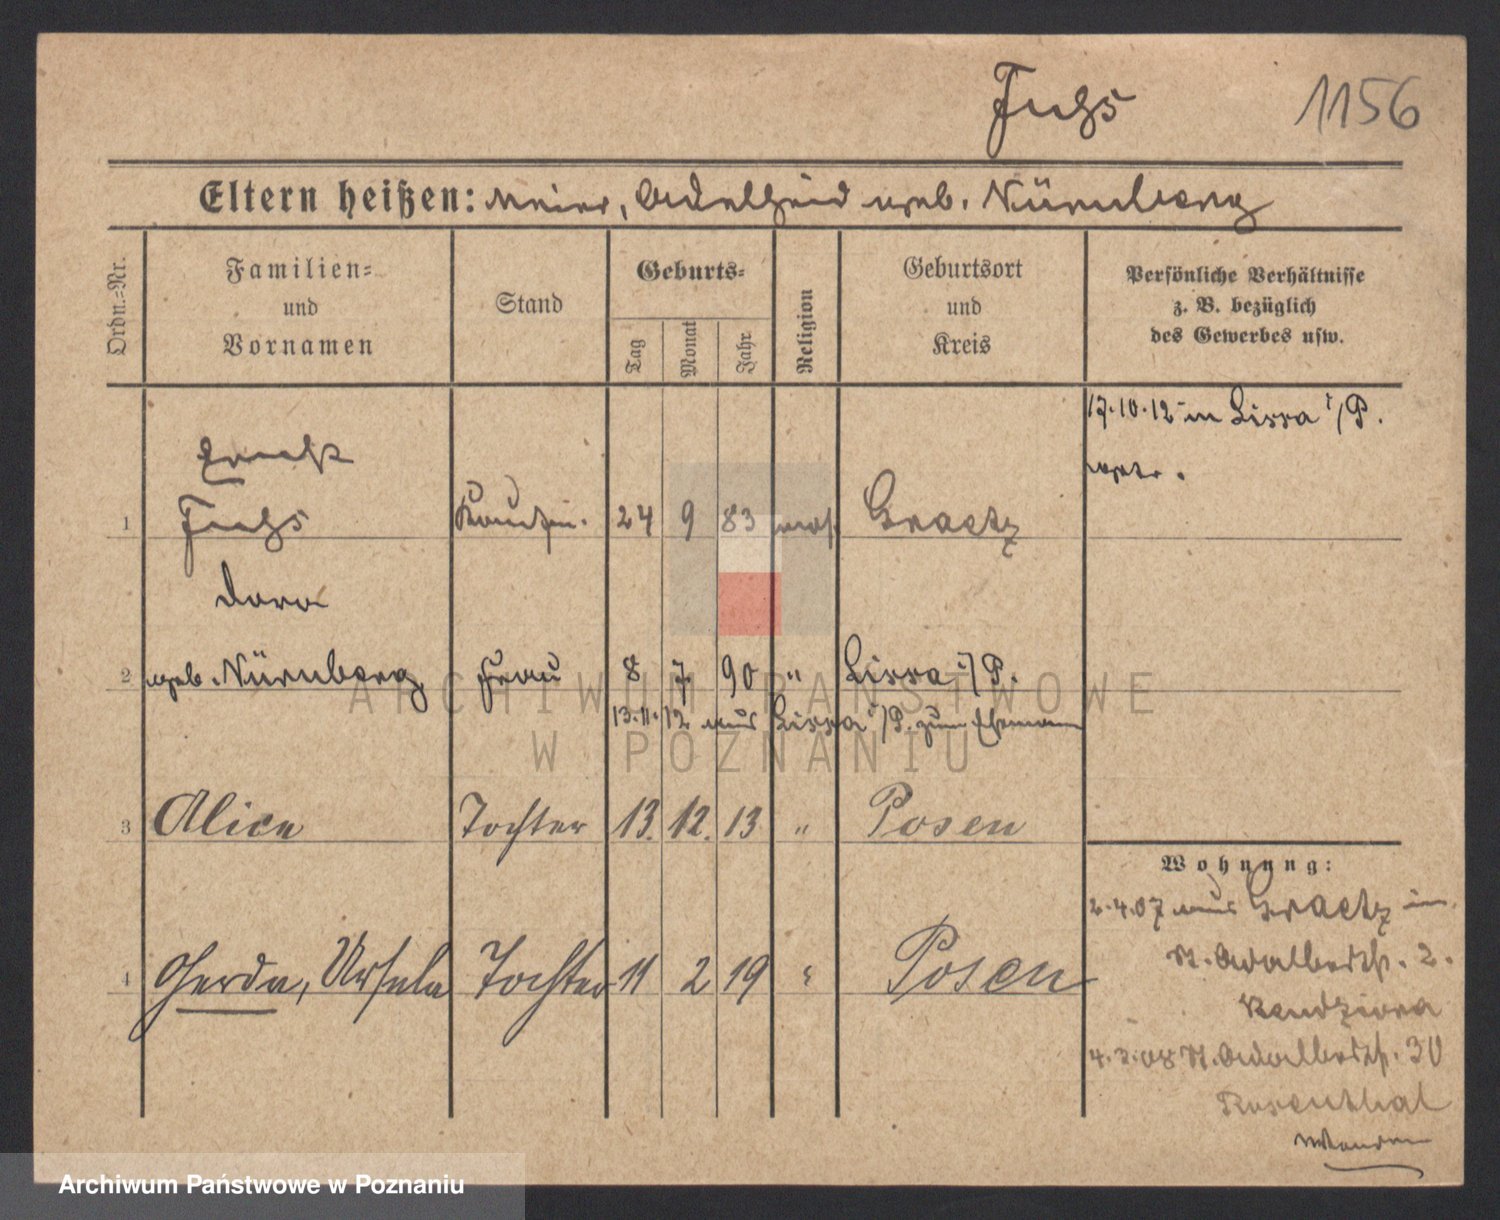 Fuchs 1156
Eltern heißen: Meier, Adelheid geb. Nürnberg
Ordn.-Nr.
Familien-
und
Vornamen
Stand
Geburts-
Tag
Monat
Jahr
Religion
Geburtsort
und
Kreis
Persönliche Verhältnisse
z. B. bezüglich
des Gewerbes usw.
17.10.12 in Lissa i/P.
Ernst
1 Fuchs Kaufm. 24 9 83 mos. Graetz
Dora
2 geb. Nürnberg Frau 8 7 90 " Lissa i/P.
13.11.12 aus Lissa i/P. zum Ehemann
3 Alice Tochter 13. 12. 13 " Posen
Wohnung:
2.4.07 aus Graetz in
St. Adalbertstr. 2.
Kendziora
4 Gerda, Ursula Tochter 11 2 19 " Posen
4.3.08 St. Adalbertstr. 30
Rosenthal
ARCHIWUM PAŃSTWOWE
W POZNANIU
Archiwum Państwowe w Poznaniu